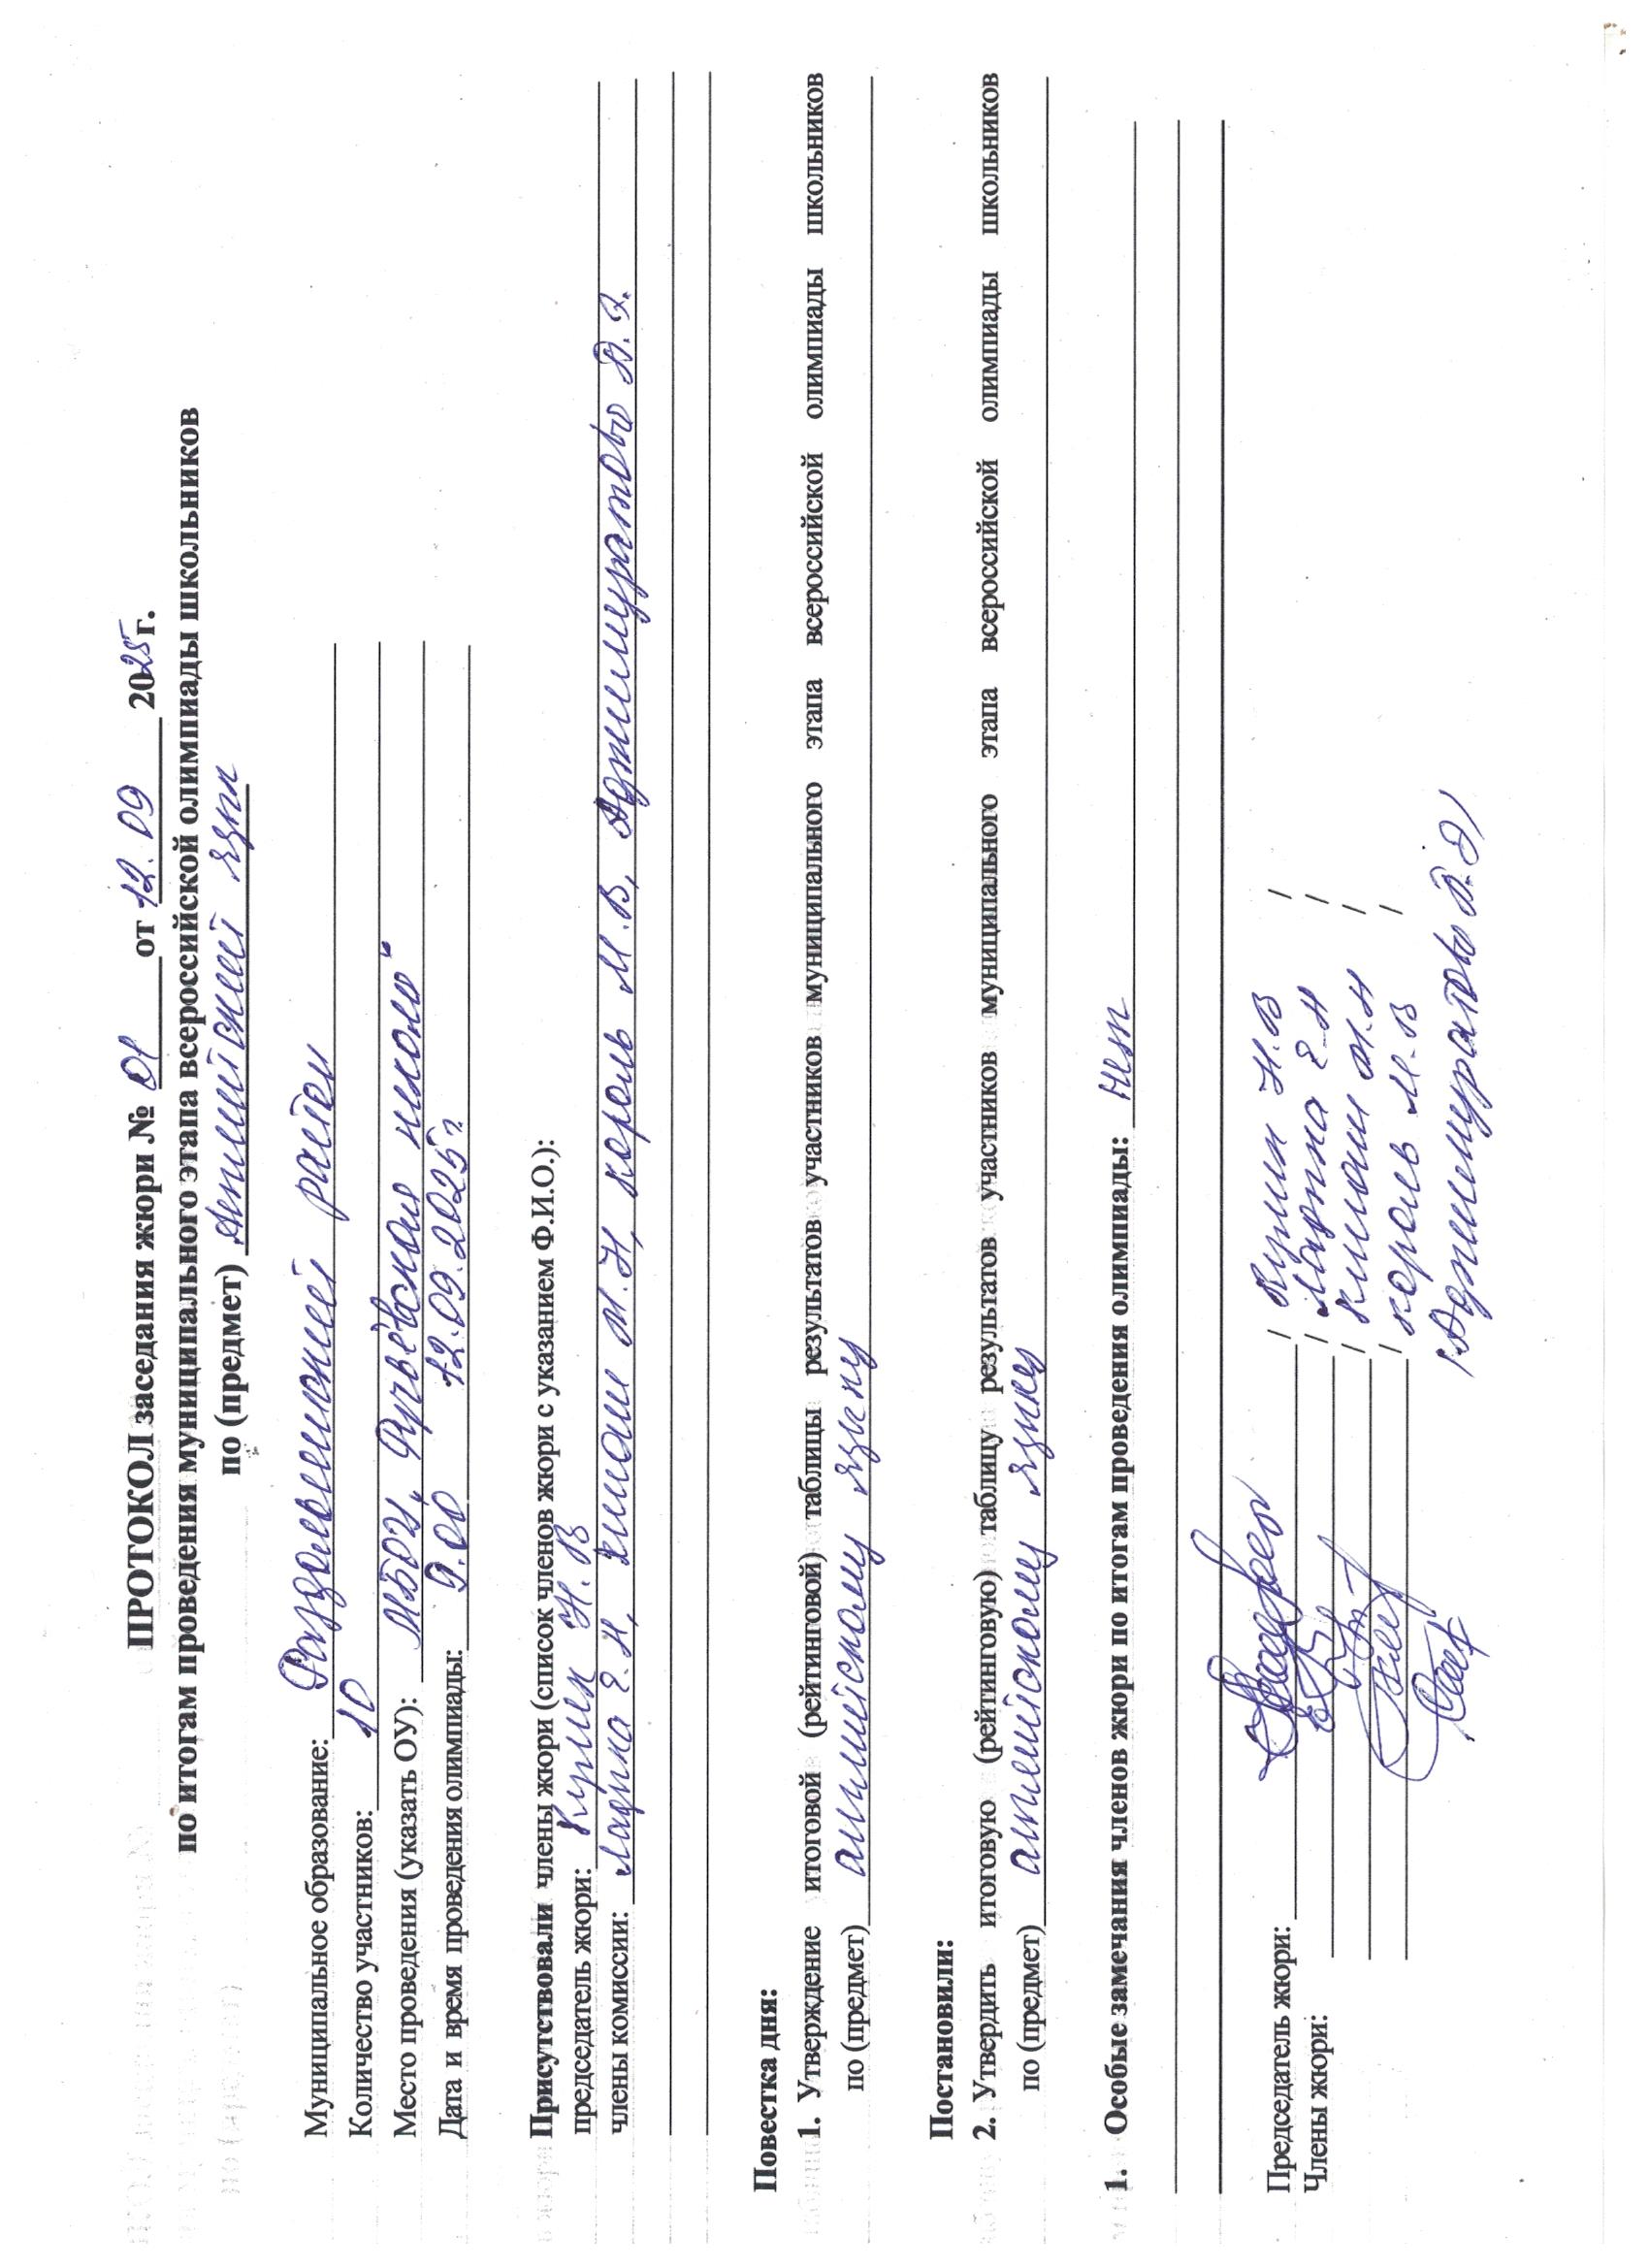 ПРОТОКОЛ заседания жюри № 01 от 12.09 2025 г.
по итогам проведения муниципального этапа всероссийской олимпиады школьников
по (предмет) Английский язык
Муниципальное образование: Раздольненский район
Количество участников: 10
Место проведения (указать ОУ): МБОУ „Ручьёвская школа“
Дата и время проведения олимпиады: 9.00 12.09.2025г
Присутствовали члены жюри (список членов жюри с указанием Ф.И.О.):
председатель жюри: Н.В
члены комиссии: Е.Н, М.Н, король М.В, Аджимуратова Д.Э.
Повестка дня:
1. Утверждение итоговой (рейтинговой) таблицы результатов участников муниципального этапа всероссийской олимпиады школьников
по (предмет) английскому языку
Постановили:
2. Утвердить итоговую (рейтинговую) таблицу результатов участников муниципального этапа всероссийской олимпиады школьников
по (предмет) английскому языку
1. Особые замечания членов жюри по итогам проведения олимпиады: нет
Председатель жюри: / Н.В /
Члены жюри: / Е.Н /
/ М.Н /
/ король М.В /
/Аджимуратова Д.Э/